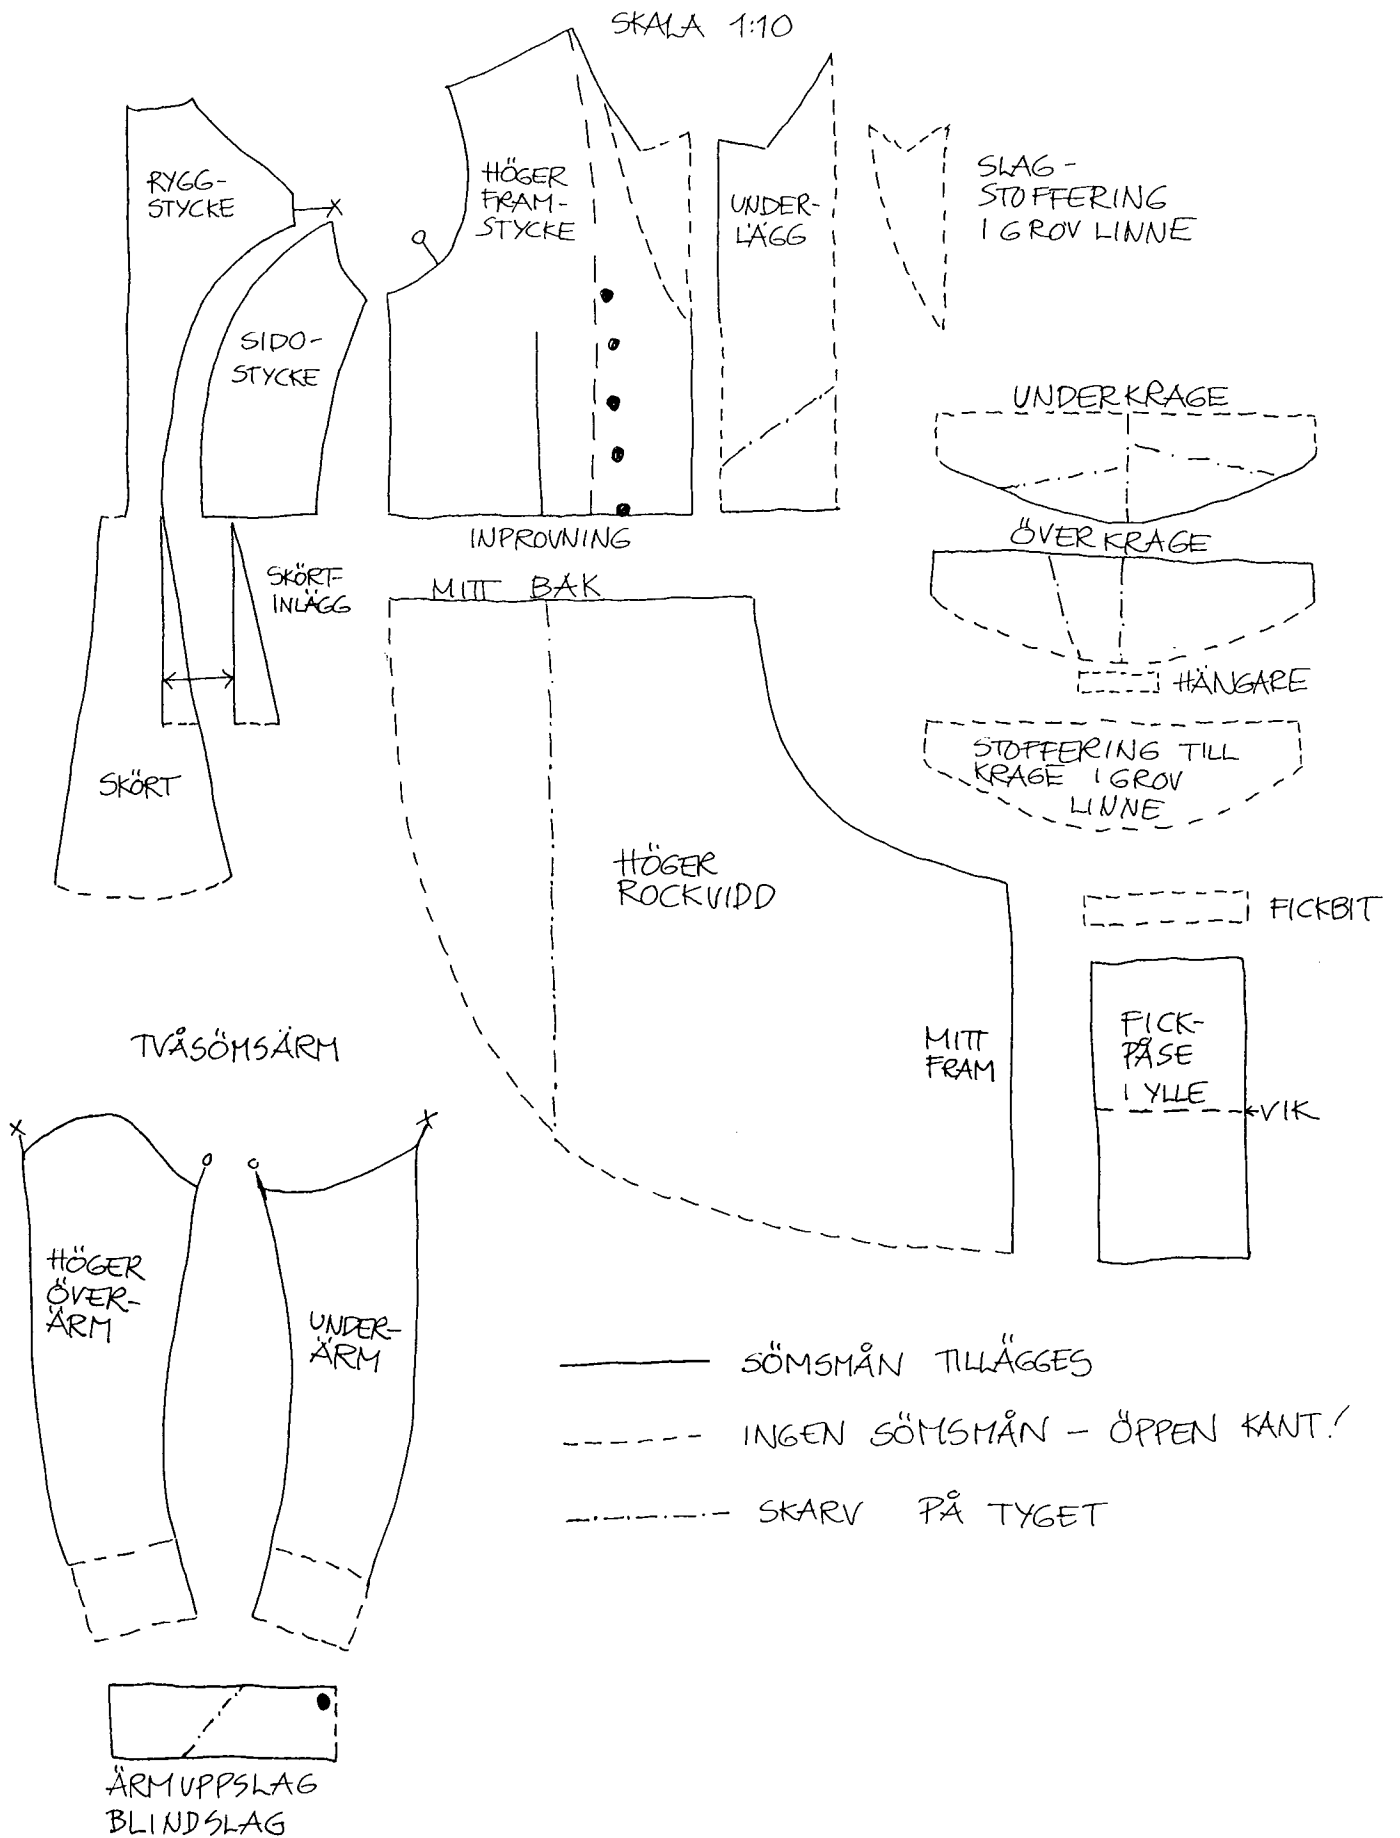 SKALA 1:10
RYGG-
STYCKE
X
HÖGER
FRAM-
STYCKE
UNDER-
LÄGG
SLAG-
STOFFERING
I GROV LINNE
SIDO-
STYCKE
UNDERKRAGE
INPROVNING
ÖVERKRAGE
SKÖRT-
INLÄGG
MITT BAK
HÄNGARE
STOFFERING TILL
KRAGE I GROV
LINNE
SKÖRT
HÖGER
ROCKVIDD
FICKBIT
TVÅSÖMSÄRM
MITT
FRAM
FICK-
PÅSE
I YLLE
VIK
X
X
HÖGER
ÖVER-
ÄRM
UNDER-
ÄRM
SÖMSMÅN TILLÄGGES
INGEN SÖMSMÅN - ÖPPEN KANT!
SKARV PÅ TYGET
ÄRMUPPSLAG
BLINDSLAG